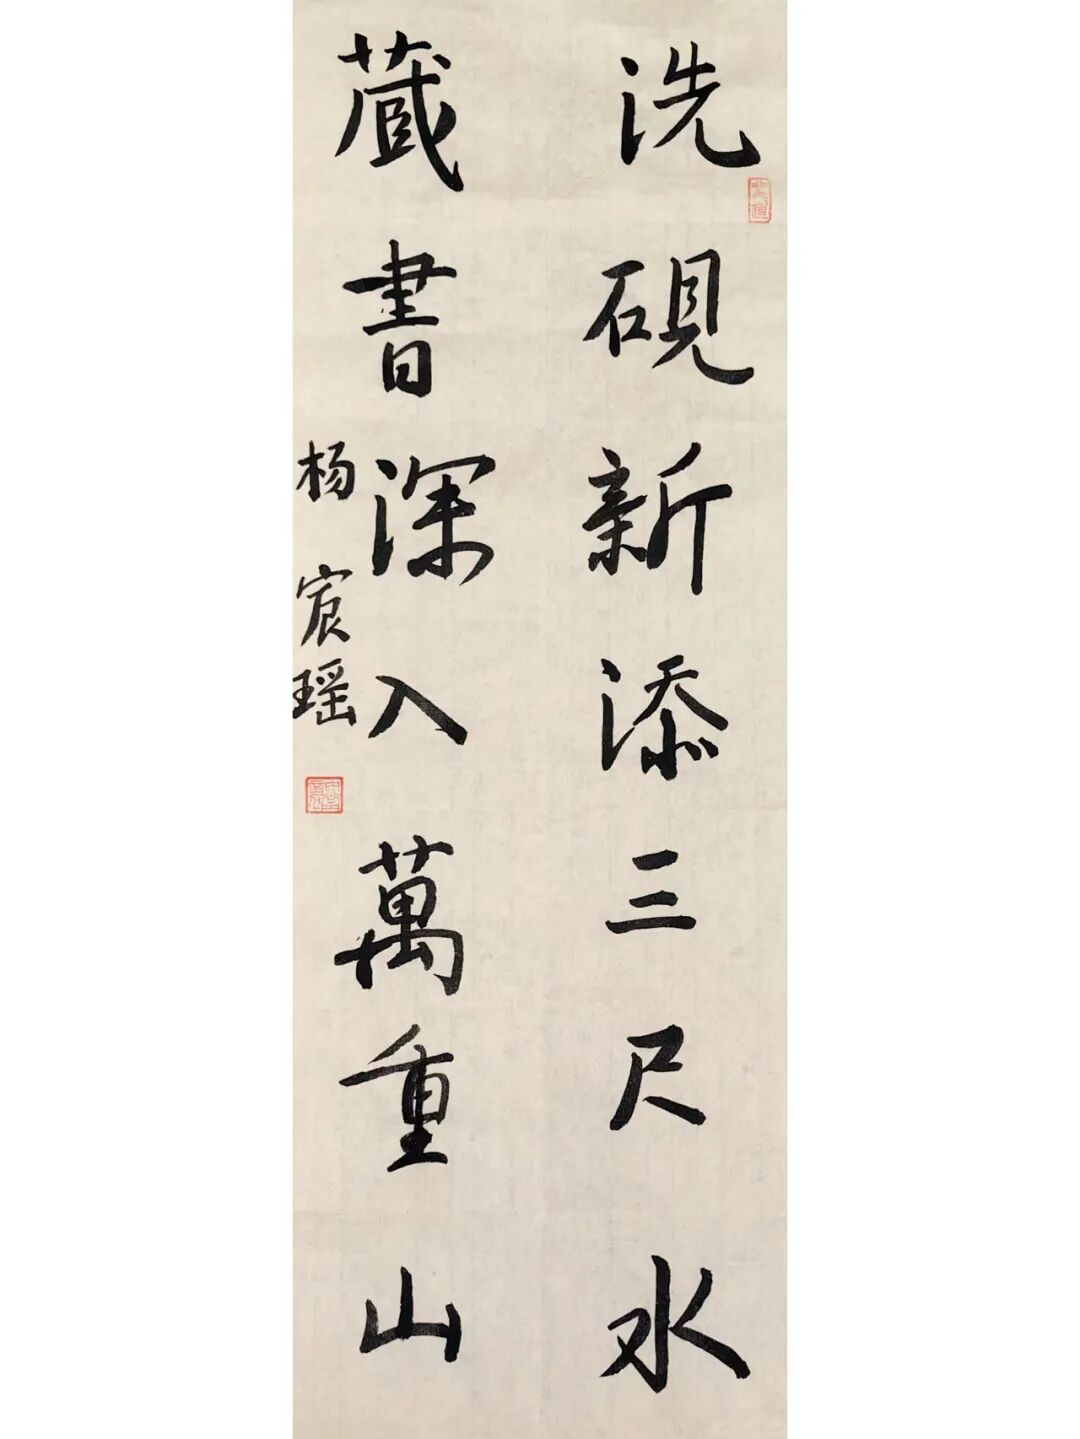 洗硯新添三尺水
藏書深入萬重山
杨宸瑶